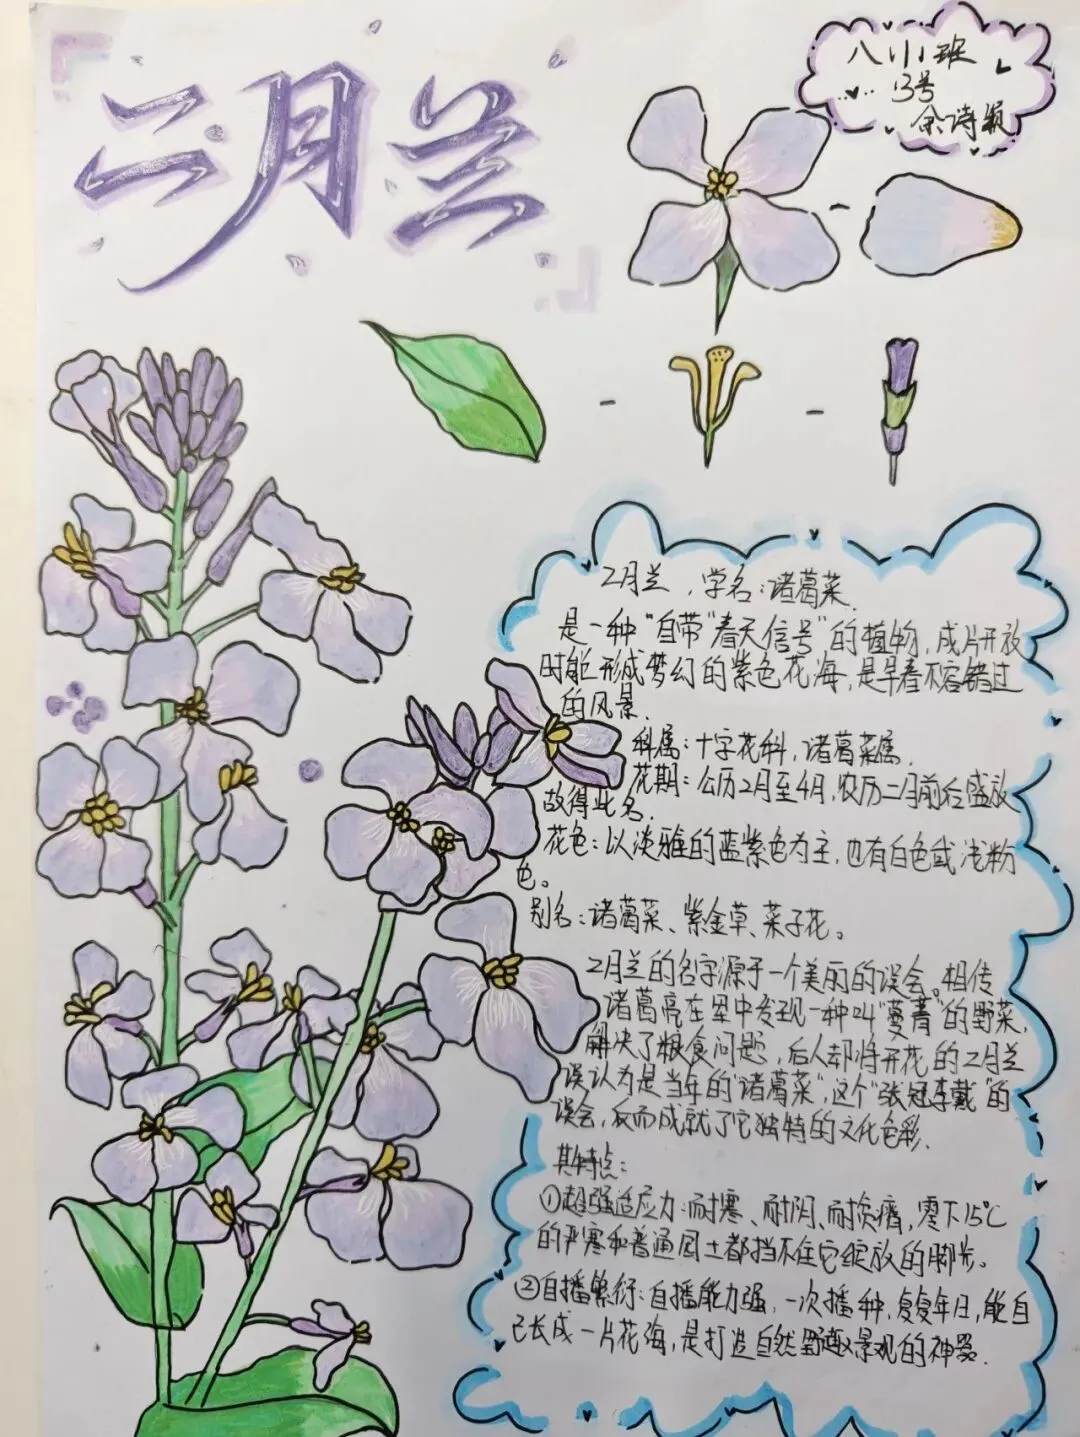 二月兰
八(1)班
13号
余诗颖
2月兰，学名：诸葛菜.
是一种“自带“春天信号”的植物，成片开放
时能形成梦幻的紫色花海，是早春不容错过
的风景.
科属：十字花科，诸葛菜属.
花期：公历2月至4月，农历二月前后盛放
故得此名.
花色：以淡雅的蓝紫色为主，也有白色或浅粉
色。
别名：诸葛菜、紫金草、菜子花。
2月兰的名字源于一个美丽的误会。相传
诸葛亮在军中发现一种叫“蔓菁”的野菜，
解决了粮食问题，后人却将开花的2月兰
误认为是当年的“诸葛菜”，这个“张冠李戴”的
误会，反而成就了它独特的文化色彩.
其特点：
①超强适应力：耐寒、耐阴、耐贫瘠，零下15℃
的严寒和普通园土都挡不住它绽放的脚步。
②自播繁衍：自播能力强，一次播种，复复年日，能自
己长成一片花海，是打造自然野趣景观的神器.